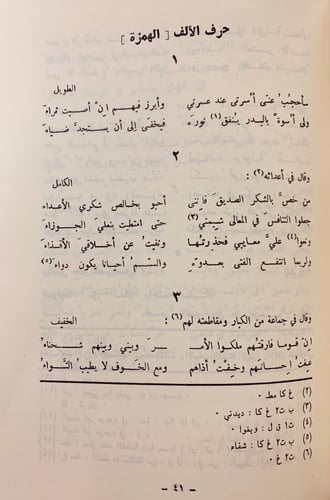 حرف الألف [ الهمزة ]
١
الطويل
سأحجب عنى أسرتى عند عسرتى وأبرز فيهم إن أصبت ثراء
ولى أسوة بالبدر ينفق (١) نوره فيخفى إلى أن يستجد ضياء
٢
وقال في أعدائه (٢) : الكامل
من خص بالشكر الصديق فإننى أحبو بخالص شكرى الأعداء
جعلوا التنافس فى المعالى شيمتى (٣) حتى امتطيت بنعلى الجوزاء
ونعوا (٤) على معايبى فحذرتها ونفيت عن أخلاقى الأقذاء
ولربما انتفع الفتى بعدوه والسم أحيانا يكون دواء (٥)
٣
وقال في جماعة من الكبار ومقاطعته لهم (٦) : الخفيف
إن قوما فارقتهم ملكوا الأمـ ـر وبينى وبينهم شحناء
عفت إحسانهم وخيفت أذاهم ومع الخوف لا يطيب الثواء
(٢) غ كا مط ٠
(٣) ب ت٢ غ كا : ديدنى ٠
(٤) ت١ ق ل : وبغوا ٠
(٥) ب ت٢ غ كا : شفاء ٠
(٦) ت٢ غ ٠
- ٤١ -